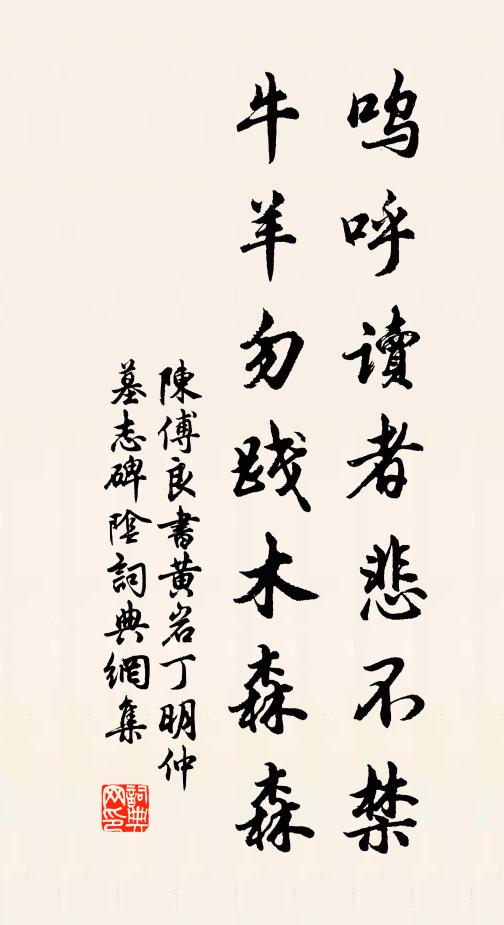 嗚呼讀者悲不禁
牛羊勿践木森森
陳傅良書黄岩丁明仲
墓志碑陰詞典網集
詞典网印